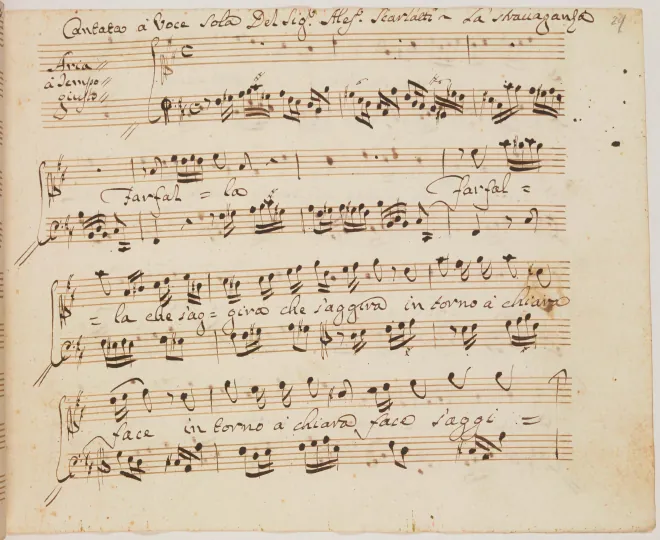 Cantata à Voce Sola Del Sigr. Aless. Scarlatti ~ La stravaganza
Aria
à Tempo
giusto
Farfal = la Farfal =
= la che s'ag = gira che s'aggira in torno à chiara
face in torno à chiara face s'aggi =